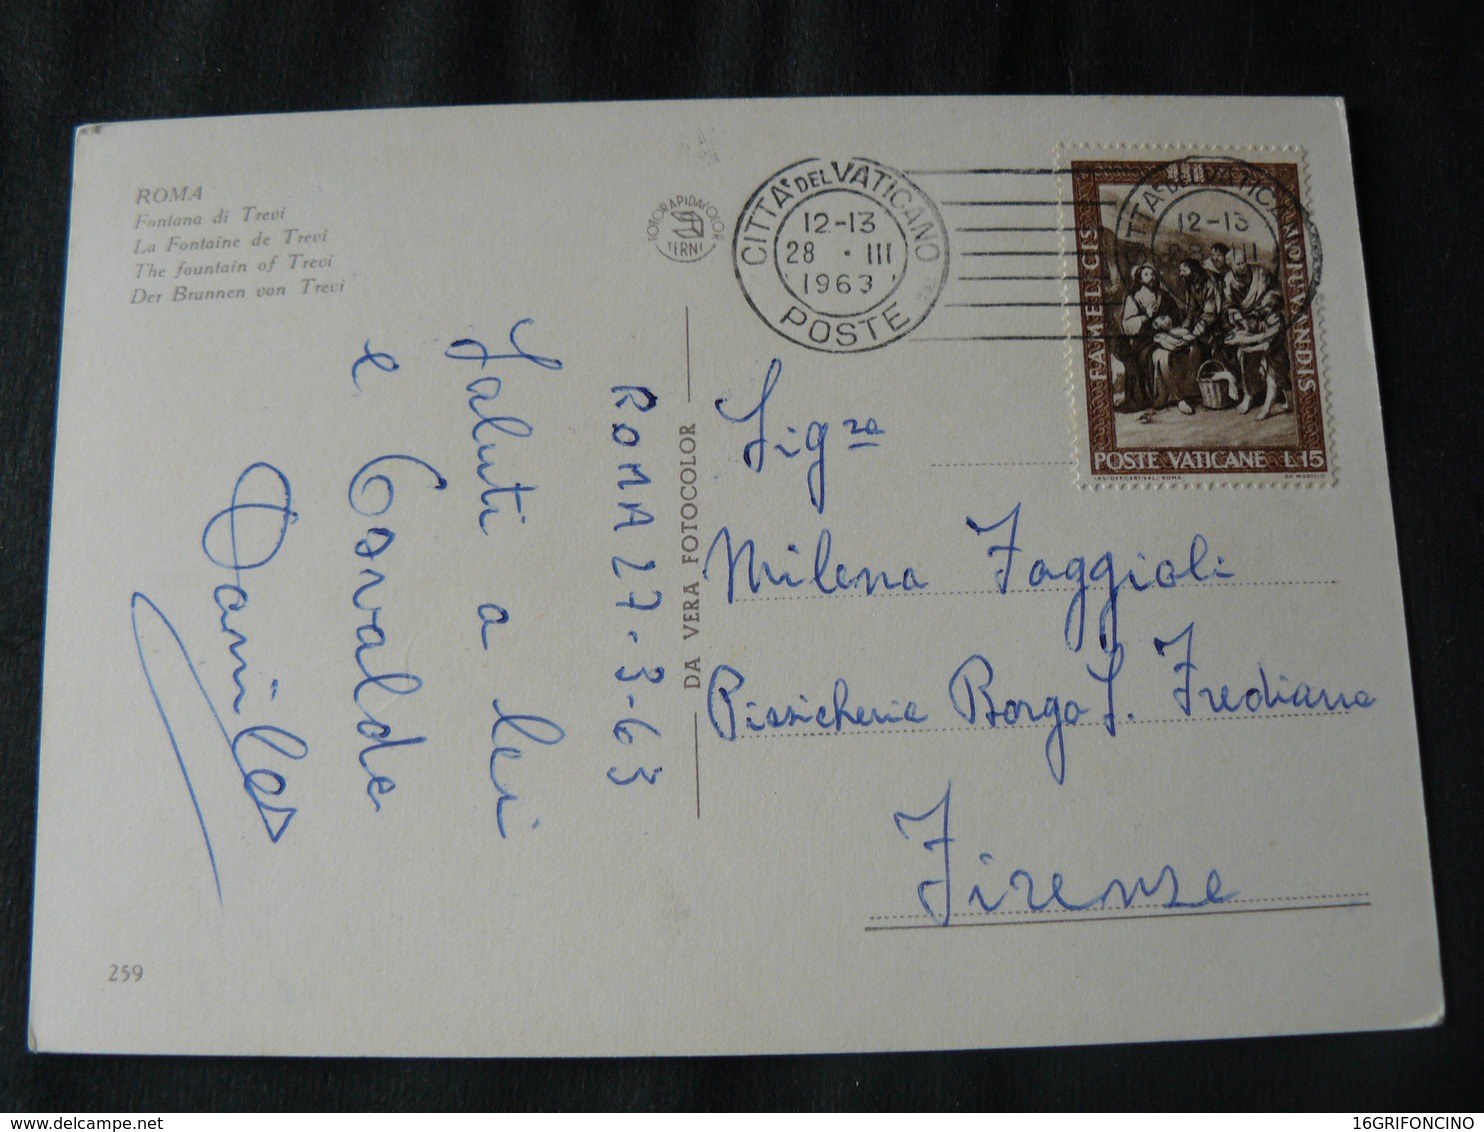 ROMA
Fontana di Trevi
La Fontaine de Trevi
The fountain of Trevi
Der Brunnen von Trevi
FOTORAPIDACOLOR
TERNI
CITTÀ DEL VATICANO
12-13
28 · III
1963
POSTE
CITTÀ DEL VATICANO
12-13
28 III
FAMELICIS
NOIUVANDIS
POSTE VATICANE L.15
ROMA 27-3-63
Saluti a lei
e Osvaldo
Danilo
DA VERA FOTOCOLOR
Sig.ra
Milena Faggioli
Pizzicheria Borgo S. Frediano
Firenze
259
16GRIFONCINO